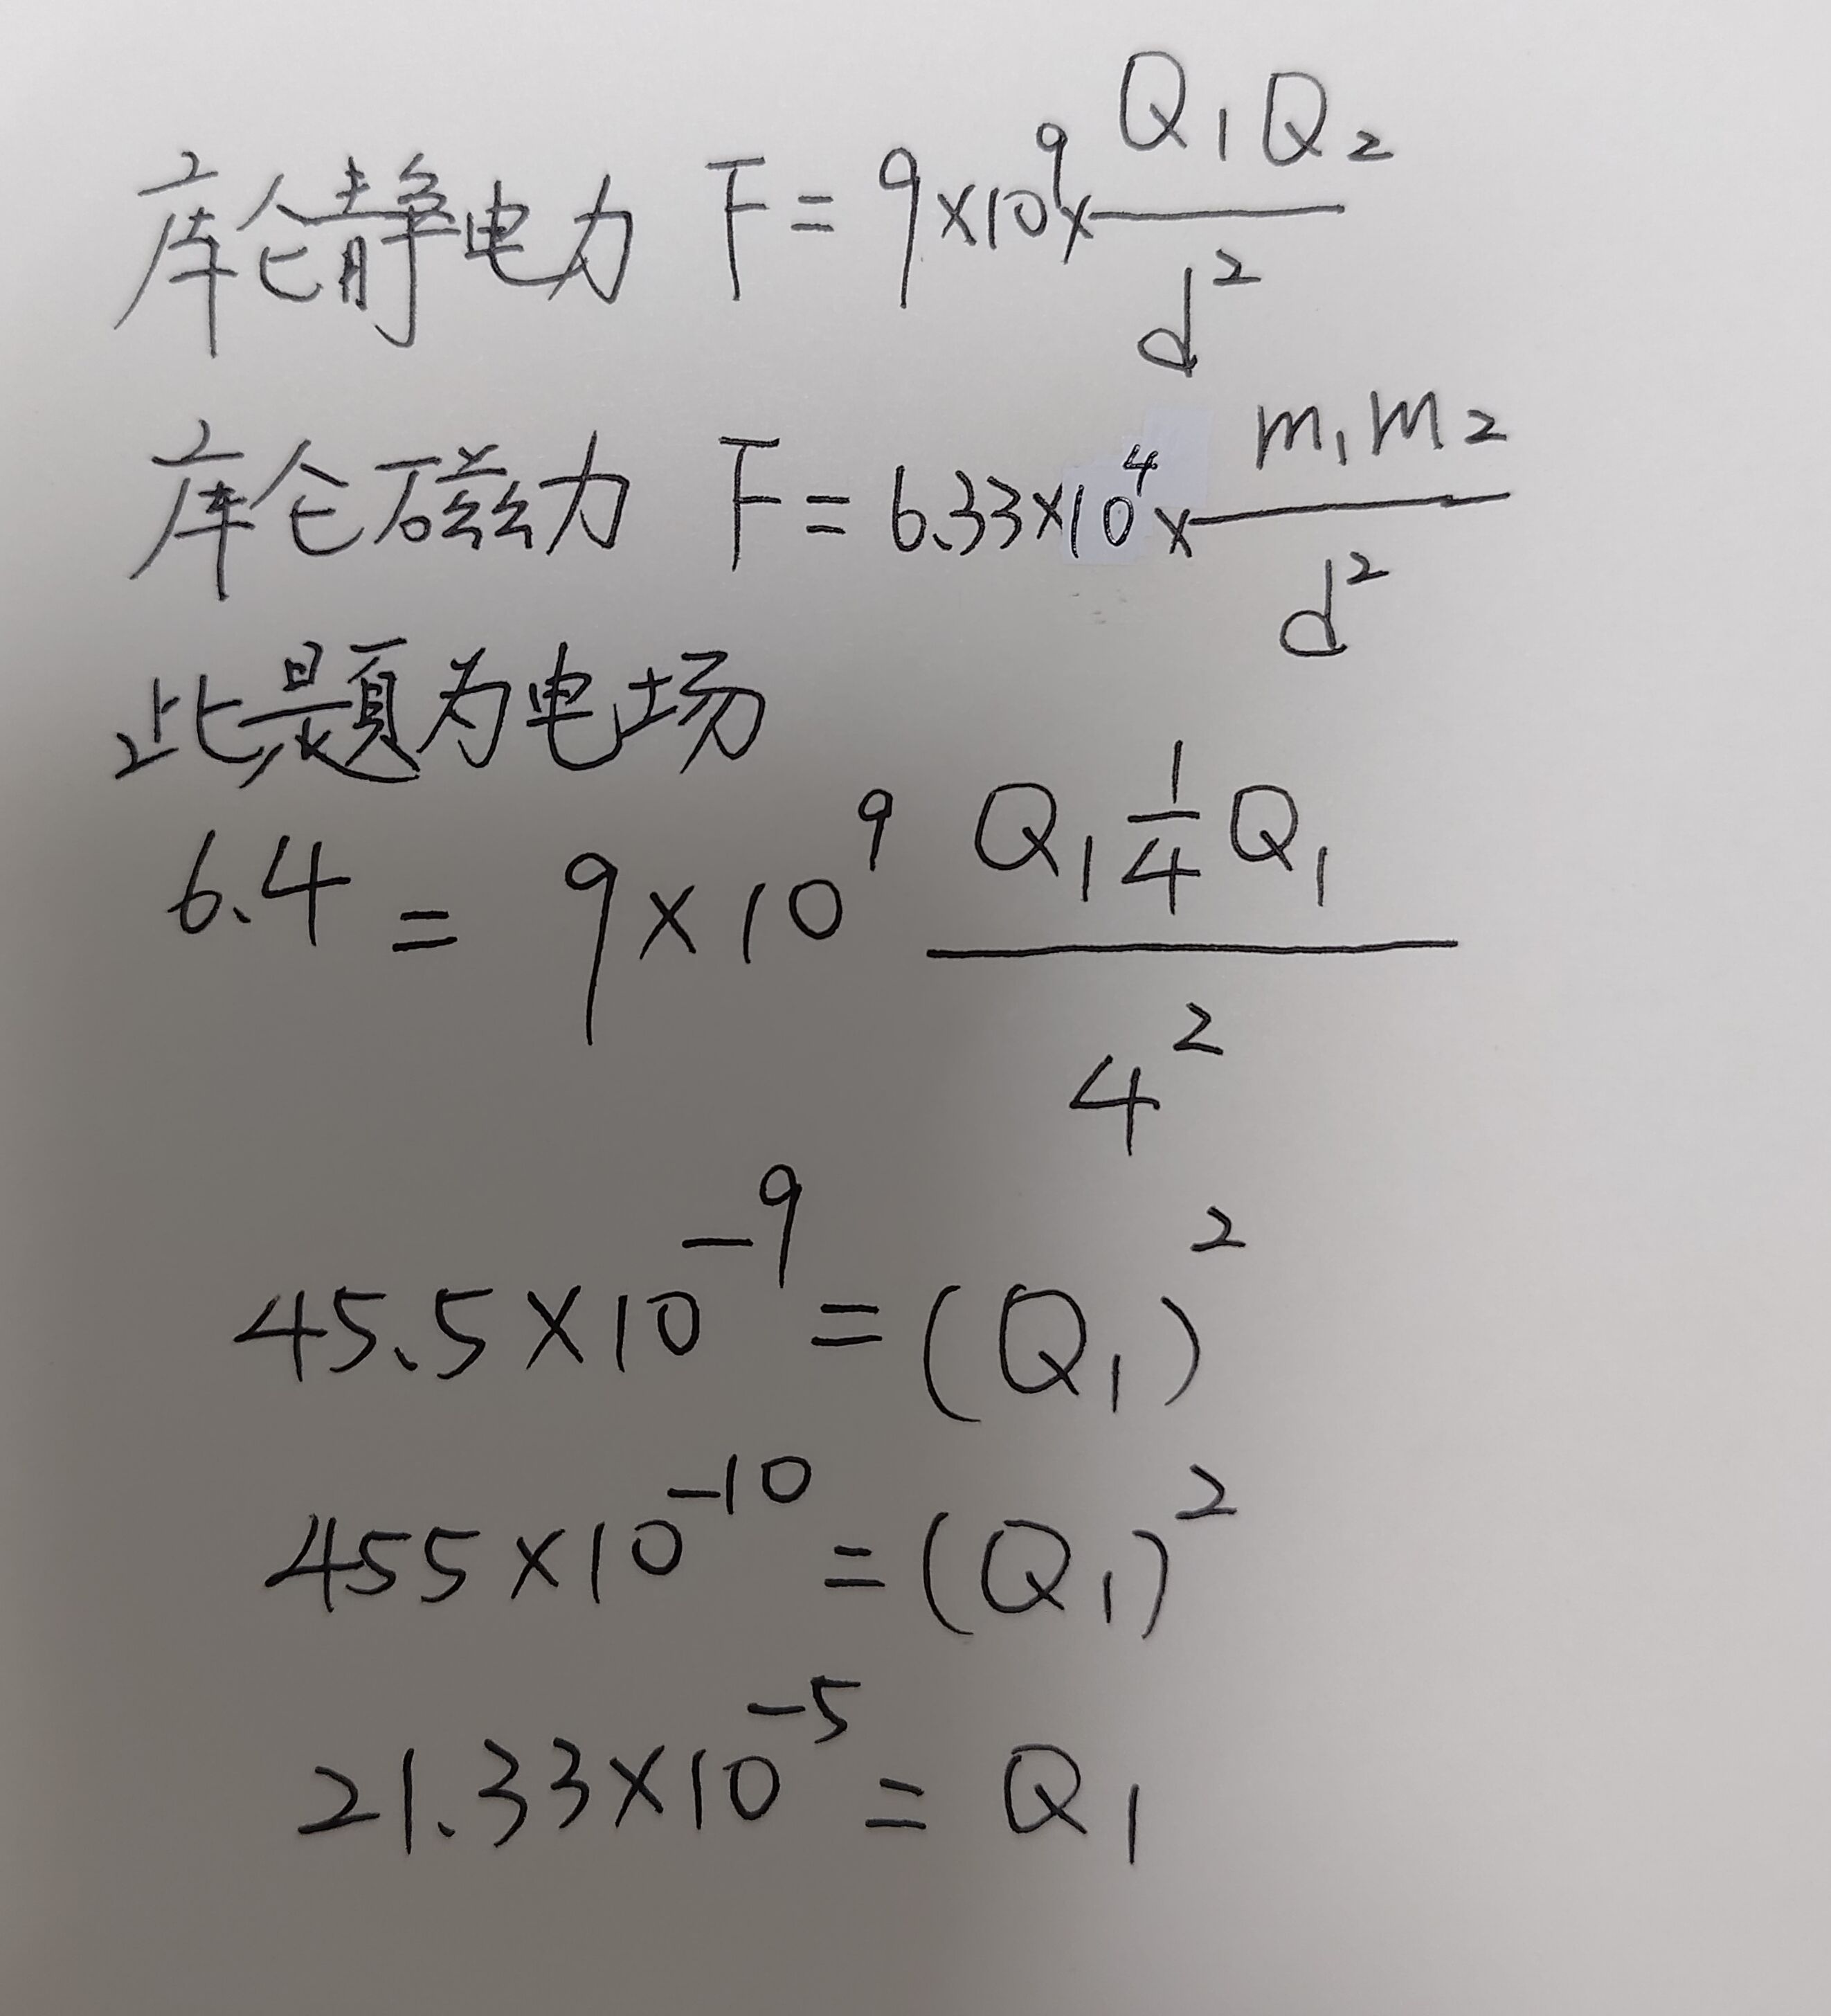 库仑静电力 F=9×10⁹×Q₁Q₂/d²
库仑磁力 F=6.33×10⁴×m₁m₂/d²
此题为电场
6.4=9×10⁹ Q₁¼Q₁/4²
45.5×10⁻⁹=(Q₁)²
455×10⁻¹⁰=(Q₁)²
21.33×10⁻⁵=Q₁